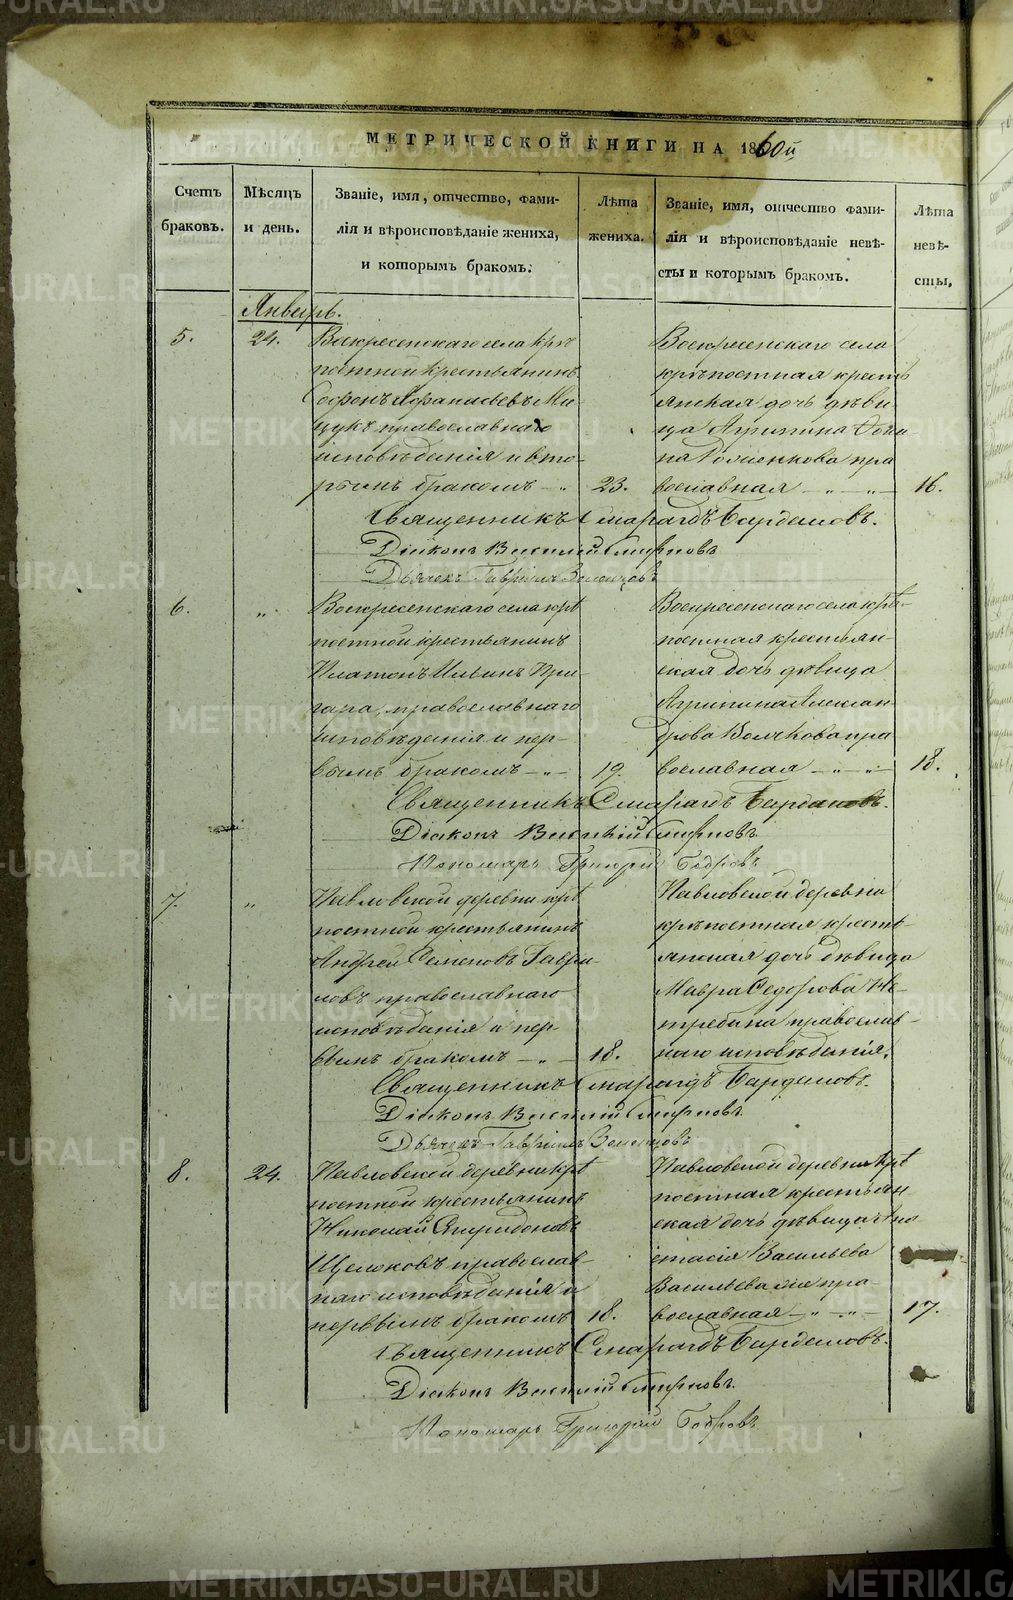 МЕТРИЧЕСКОЙ КНИГИ НА 1860й
Счетъ браковъ.
Мѣсяцъ и день.
Званіе, имя, отчество, фами-
лія и вѣроисповѣданіе жениха,
и которымъ бракомъ.
Лѣта
жениха.
Званіе, имя, отчество фами-
лія и вѣроисповѣданіе невѣ-
сты и которымъ бракомъ.
Лѣта
невѣ-
сты.
Январь.
5.
24.
Воскресенскаго села крѣ
постной крестьянинъ
Софонъ Афанасьевъ
православнаго
исповѣданія и вто-
рымъ бракомъ — „
23.
Воскресенскаго села
крѣпостная кресть
янская дочь дѣви-
ца Агрипина
пра
вославная — „ — „ —
16.
Священникъ Смарагдъ
Діаконъ Василій Смирновъ
Дьячекъ Гавріилъ
6.
„
Воскресенскаго села крѣ
постной крестьянинъ
Платонъ Ильинъ При-
гара, православнаго
исповѣданія и пер-
вымъ бракомъ — „ —
19.
Воскресенскаго села крѣ-
постная крестьян-
ская дочь дѣвица
Агрипина Алексан-
дрова Волчкова пра
вославная — „ — „ —
18.
Священникъ Смарагдъ
Діаконъ Василій Смирновъ
Пономарь Григорій Бобровъ
7.
„
Павловской деревни крѣ
постной крестьянинъ
Андрей Семеновъ Гаври-
ловъ православнаго
исповѣданія и пер-
вымъ бракомъ — „ —
18.
Павловской деревни
крѣпостная кресть-
янская дочь дѣвица
Мавра Седорова Не-
требина православ-
наго исповѣданія.
Священникъ Смарагдъ
Діаконъ Василій Смирновъ
Дьячекъ Гавріилъ
8.
24.
Павловской деревни крѣ
постной крестьянинъ
Николай Спиридоновъ
Щелоковъ православ-
наго исповѣданія и
первымъ бракомъ
18.
Павловской деревни крѣ
постная крестьян-
ская дочь дѣвица Ана
стасія Васильева
пра-
вославная — „ — „ —
17.
Священникъ Смарагдъ
Діаконъ Василій Смирновъ.
Пономарь Григорій Бобровъ
METRIKI.GASO-URAL.RU